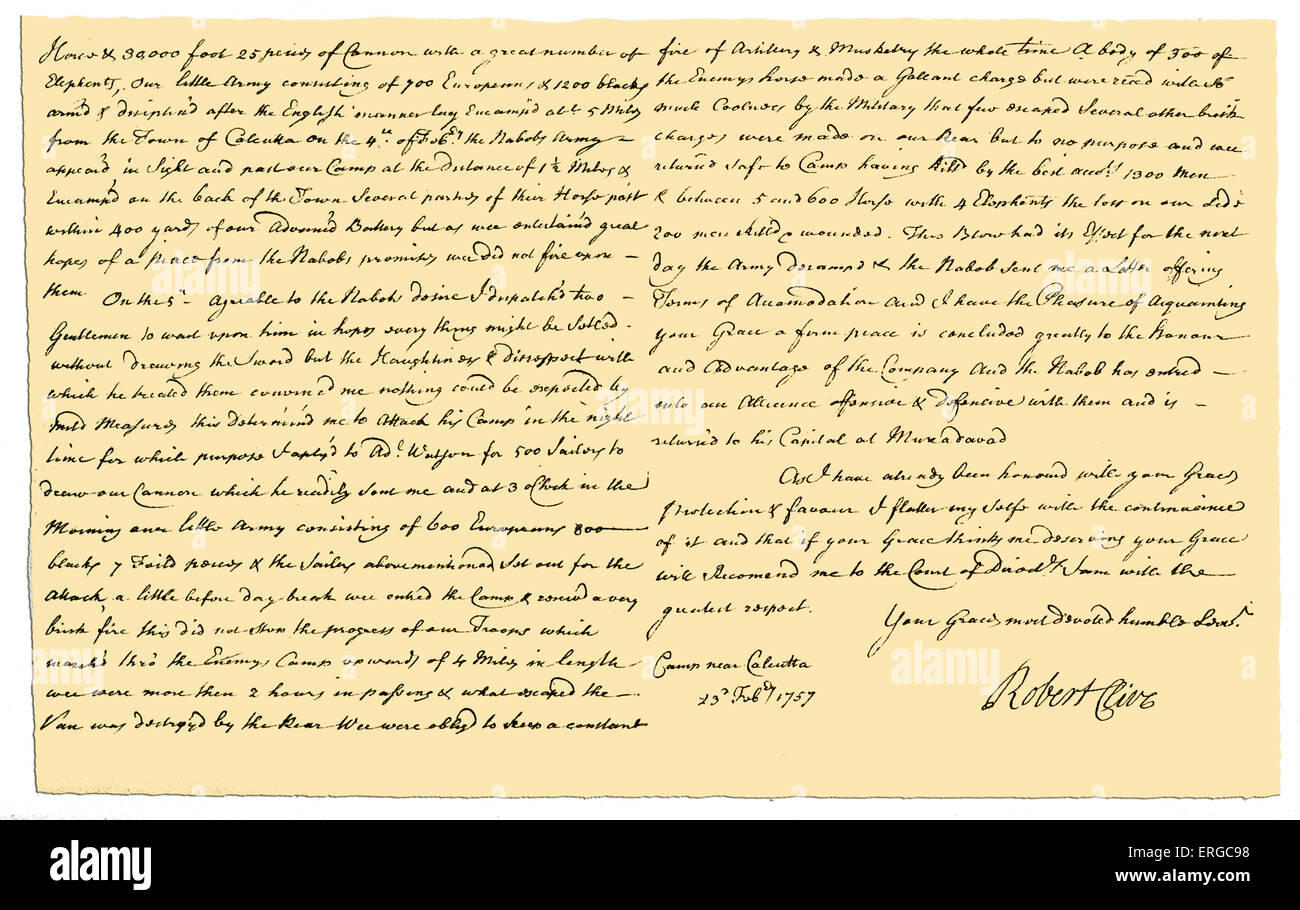 Horse & 30,000 foot 25 peices of Cannon with a great number of
Elephents, Our little Army consisting of 700 Europeans & 1200 blacks
arm'd & disciplin'd after the English manner lay Encamp'd abt. 5 Miles
from the Town of Calcutta on the 4th. of Febry. the Nabobs Army
appear'd in Sight and past our Camp at the distance of 1½ Miles &
Encamp'd on the back of the Town Several parties of their Horse past
within 400 yards of our Advanc'd Battery but as wee entertain'd great
hopes of a peace from the Nabobs promises wee did not fire upon
them On the 5th Agreable to the Nabobs desire I dispatch'd two
Gentlemen to wait upon him in hopes every thing might be Setled
without drawing the Sword but the Haughtiness & disrespect with
which he treated them convinc'd me nothing could be expected by
mild Measures this determin'd me to Attack his Camp in the night
time for which purpose I aply'd to Adl. Watson for 500 Sailors to
draw our Cannon which he readily sent me and at 3 oClock in the
Morning our little Army consisting of 600 Europeans 800
blacks 7 Feild peices & the Sailors abovementioned Set out for the
Attack a little before day break wee entred the Camp & receiv'd a very
brisk fire this did not stop the progress of our Troops which
march'd thro' the Enemys Camp upwards of 4 Miles in length
wee were more then 2 hours in passing & what escaped the
Van was destroy'd by the Rear Wee were oblig'd to keep a constant
fire of Artillery & Musketry the whole time A body of 300 of
the Enemys horse made a Gallant charge but were receiv'd with so
much Coolness by the Military that few escaped Several other brisk
charges were made on our Rear but to no purpose and wee
return'd safe to Camp having kill'd by the best accots. 1300 Men
& between 5 and 600 Horse with 4 Elephents the loss on our Side
200 men kill'd & wounded. This Blow had its Effect for the next
day the Army decamp'd & the Nabob sent me a Letter offering
Terms of Acomodation and I have the Pleasure of Acquainting
your Grace a firm peace is concluded greatly to the Honour
and Advantage of the Company And the Nabob has entred
into an Alliance offensive & defensive with them and is
return'd to his Capital at Muxadavad
As I have already been honour'd with your Graces
Protection & favour I flatter my Selfe with the continuance
of it and that if your Grace thinks me deserving your Grace
will Recomend me to the Court of Directrs. I am with the
greatest respect.
Your Graces most devoted humble Servt.
Camp near Calcutta
23d Febry 1757
Robert Clive
alamy
alamy
alamy
alamy
alamy
alamy
alamy
alamy
Image ID: ERGC98
www.alamy.com